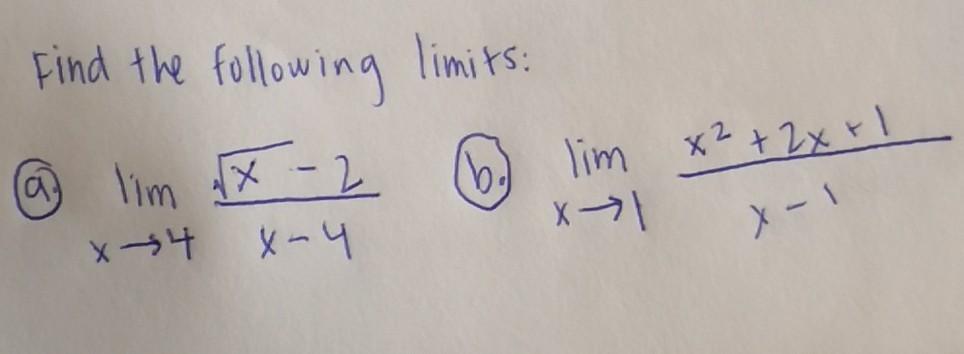 Find the following limits:
a. lim x→4 √x - 2 / x - 4
b. lim x→1 x² + 2x + 1 / x - 1